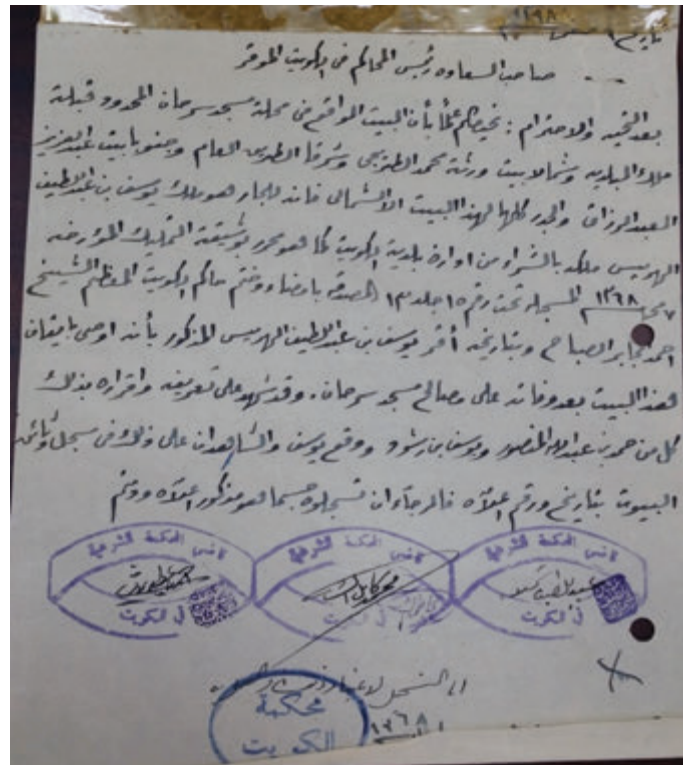 ١٣٦٨
صاحب السعاده رئيس المحاكم في الكويت الموقر
بعد التحيه والاحترام : نحيطكم علماً بأن البيت الواقع في محلة مسجد سرحان المحدود قبلة
ملك البلديه وشمالا بيت ورثة محمد وشرقا الطريق العام وجنوبا بيت عبدالعزيز
العبدالرزاق والجدر كلها لهذا البيت الا الشمالي فانه للجار هو ملك يوسف بن عبداللطيف
ملكه بالشراء من ادارة بلدية الكويت كما هو محرر بوثيقة التمليك المؤرخه
١٣٦٨ المسجله تحت رقم ١٥ جلد المصدقه بامضاء وختم حاكم الكويت المعظم الشيخ
احمد الجابر الصباح وبتاريخه أقر يوسف بن عبداللطيف المذكور بأنه اوصى بايقاف
هذا البيت بعد وفاته على مصالح مسجد سرحان . وقد شهد على تعريفه واقراره بذلك
كل من حمد بن عبدالله المنصور ويوسف بن رشود ووقع يوسف والشاهدان على ذلك في سجل وثائق
البيوت بتاريخ ورقم اعلاه فالرجاء ان تسجلوه حسبما هو مذكور اعلاه ودمتم
قاضي المحكمة الشرعية قاضي المحكمة الشرعية قاضي المحكمة الشرعية
في الكويت في الكويت في الكويت
محكمة
الكويت
١٣٦٨